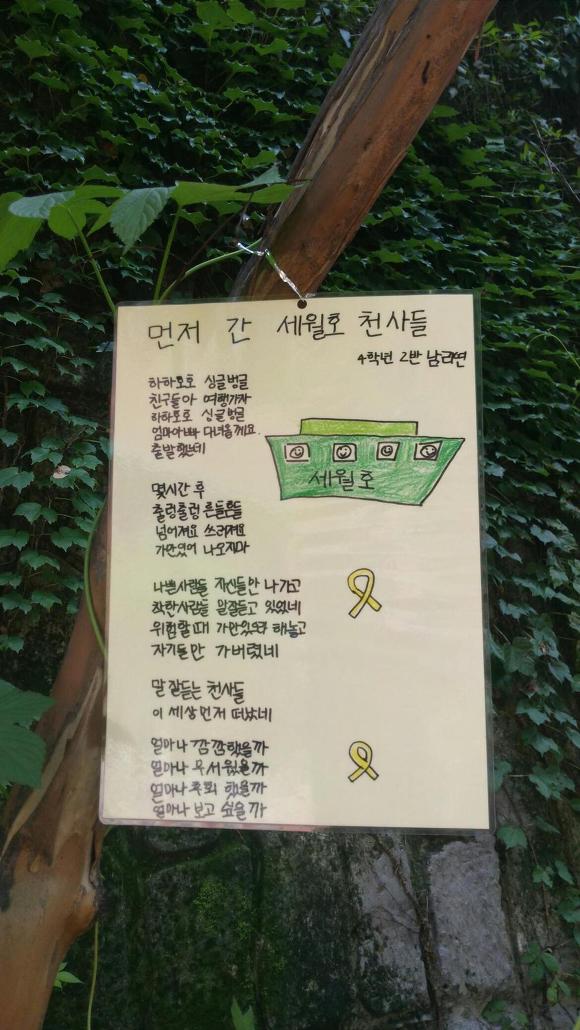 먼저 간 세월호 천사들
4학년 2반 남리연
하하호호 싱글벙글
친구들아 여행가자
하하호호 싱글벙글
엄마아빠 다녀올께요.
출발했는데
세월호
몇시간 후
출렁출렁 흔들흔들
넘어져요 쓰러져요
가만있어 나오지마
나쁜사람들 자신들만 나가고
착한사람들 말잘듣고 있었네
위험할때 가만있으라 해놓고
자기들만 가버렸네
말 잘듣는 천사들
이 세상먼저 떠났네
얼마나 깜깜했을까
얼마나 무서웠을까
얼마나 후회 했을까
얼마나 보고 싶을까